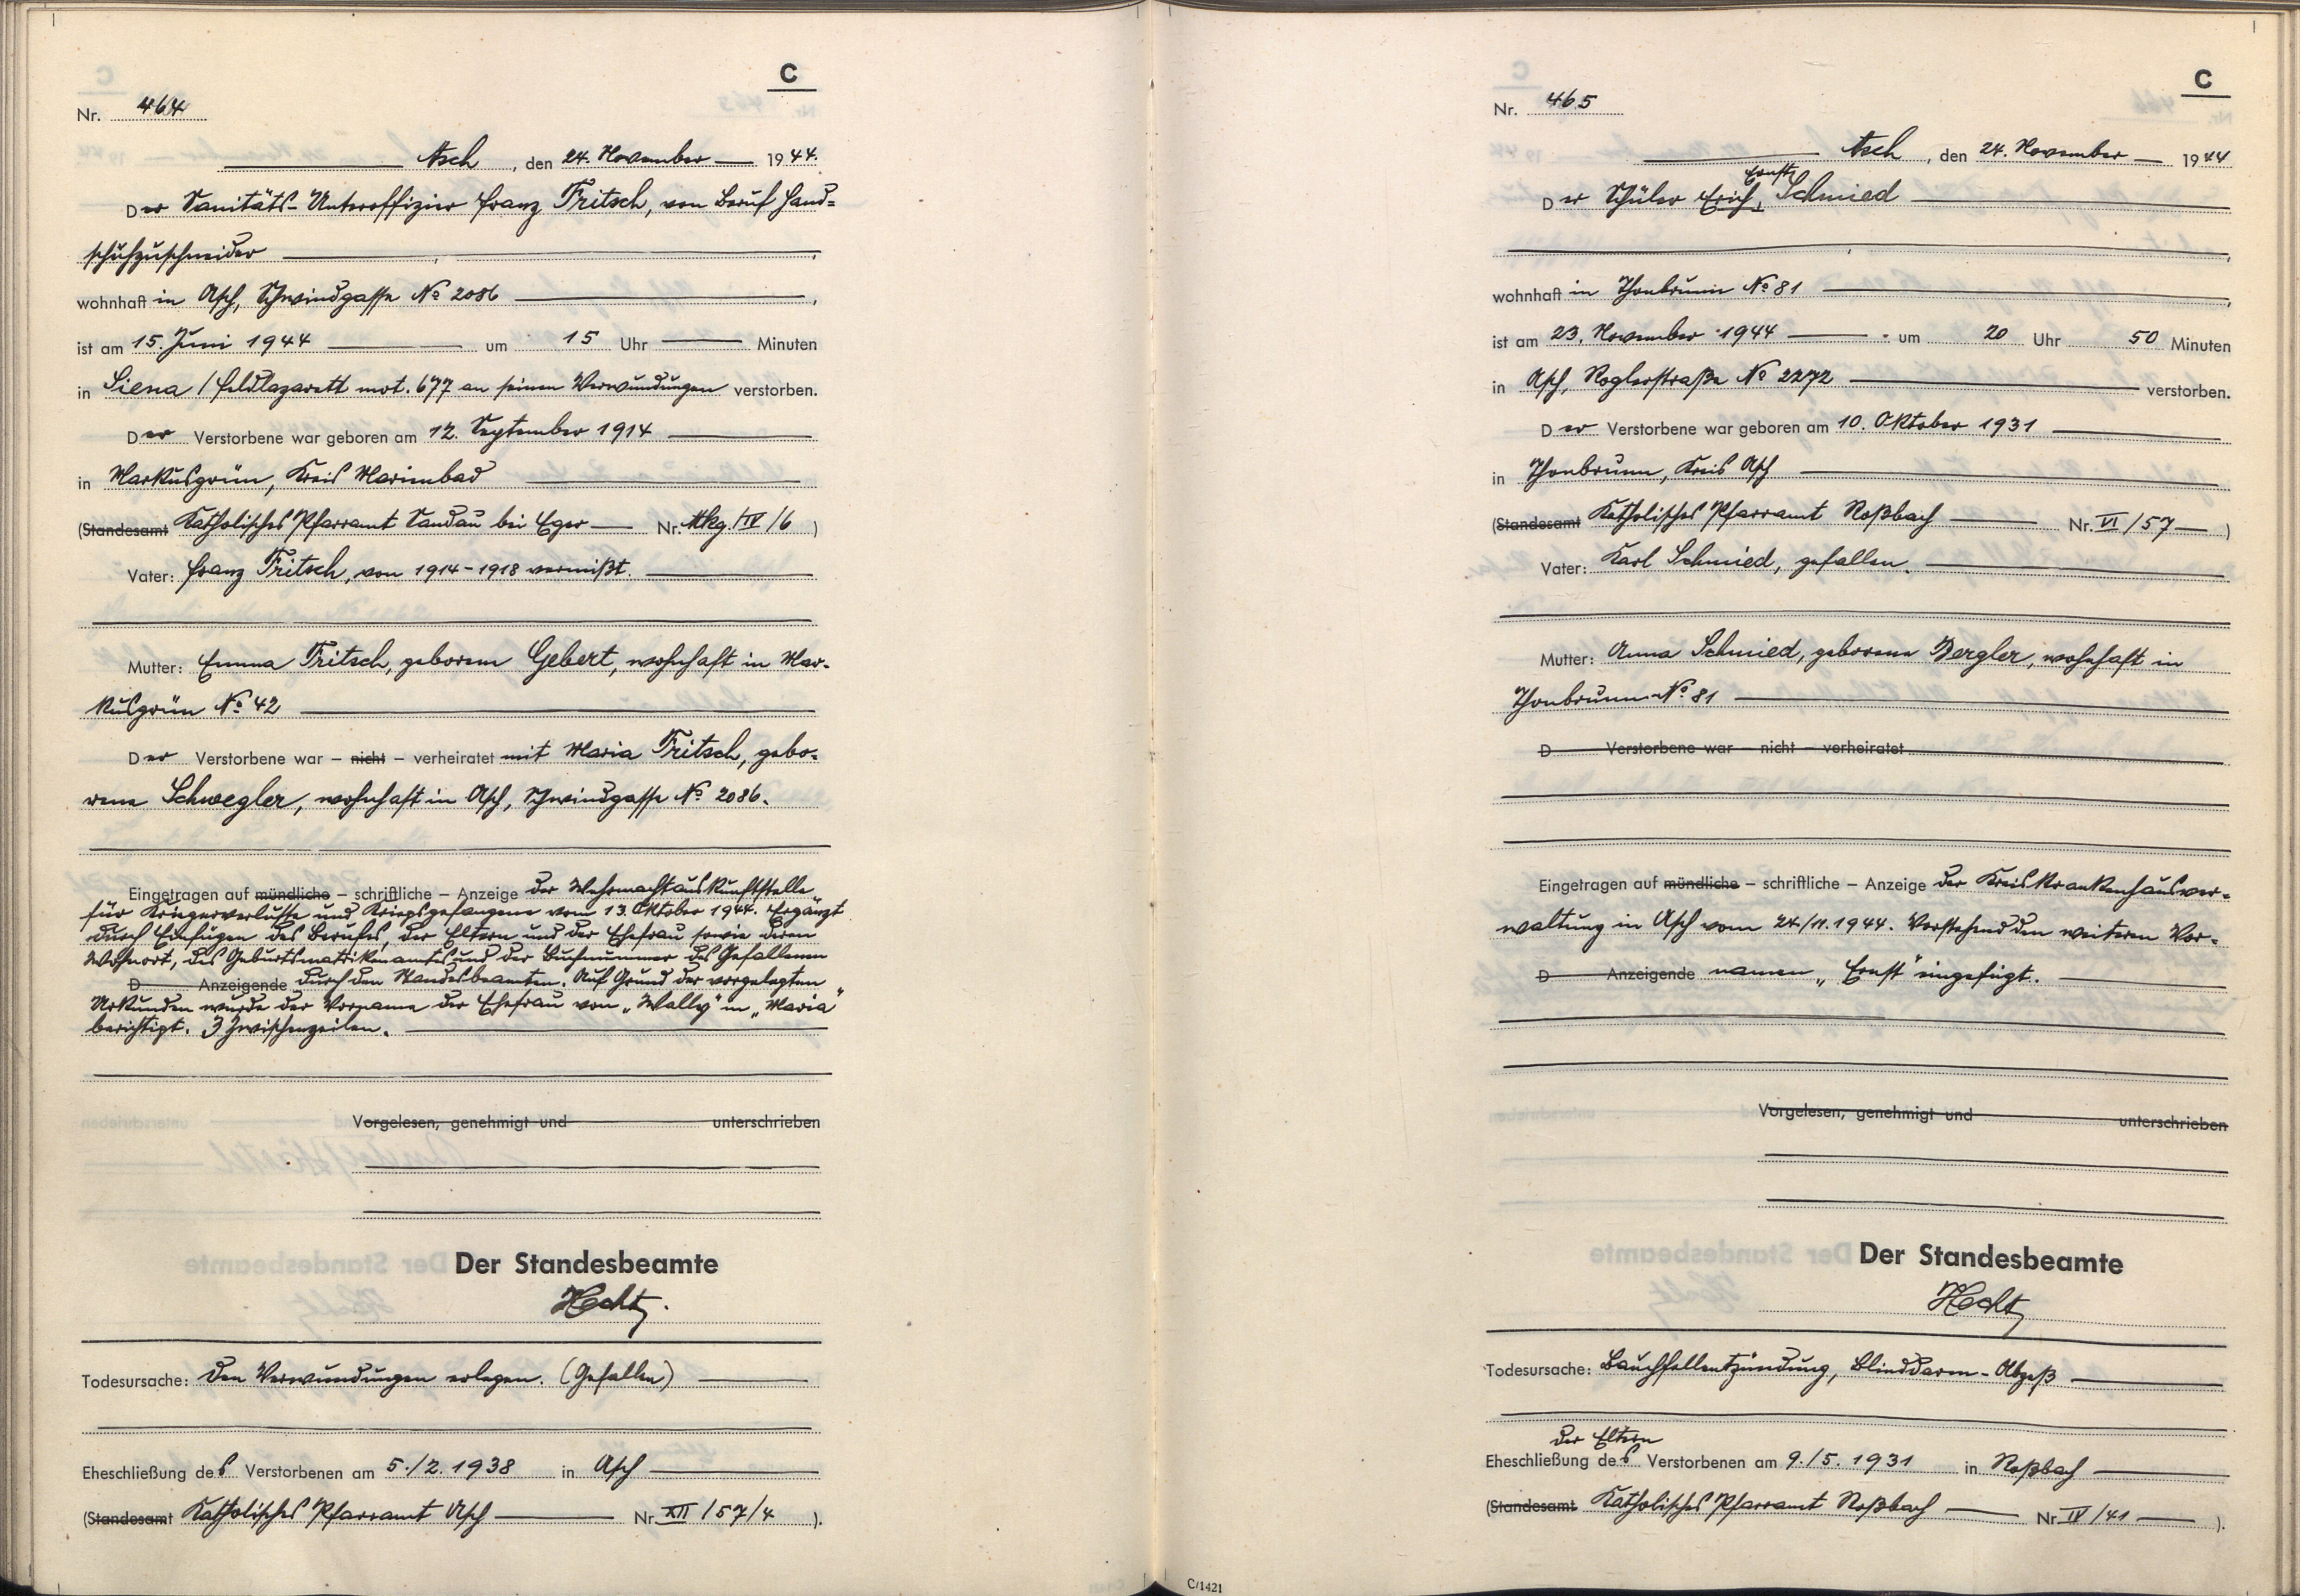 C
Nr. 464
Asch, den 24. November 1944.
Der Sanitäts-Unteroffizier Franz Fritsch, von Beruf Hand=
schuhzuschneider
wohnhaft in Asch, Schwindgasse No 2086,
ist am 15. Juni 1944 um 15 Uhr Minuten
in Siena / Feldlazarett mot. 677 an seinen Verwundungen verstorben.
Der Verstorbene war geboren am 12. September 1914
in Markusgrün, Kreis Marienbad
(Standesamt Katholisches Pfarramt Sandau bei Eger Nr. Mkg. IV/6)
Vater: Franz Fritsch, von 1914-1918 vermißt.
Mutter: Emma Fritsch, geborene Gebert, wohnhaft in Mar-
kusgrün No 42
Der Verstorbene war – nicht – verheiratet mit Maria Fritsch, gebo-
rene Schwegler, wohnhaft in Asch, Schwindgasse No 2086.
Eingetragen auf mündliche – schriftliche – Anzeige der Wehrmachtauskunftstelle
für Kriegerverluste und Kriegsgefangene vom 13. Oktober 1944. Ergänzt
durch Einfügen des Berufes, der Eltern und der Ehefrau sowie deren
Wohnort, des Geburtsmatrikenamtes und der Buchnummer des Gefallenen
D Anzeigende durch den Standesbeamten. Auf Grund der vorgelegten
Urkunden wurde der Vorname der Ehefrau von „Wally" in „Maria"
berichtigt. 3 Zwischenzeilen.
Vorgelesen, genehmigt und unterschrieben
Der Standesbeamte
Hecht.
Todesursache: Den Verwundungen erlegen. (Gefallen)
Eheschließung des Verstorbenen am 5./2. 1938 in Asch
(Standesamt Katholisches Pfarramt Asch Nr XII/57/4).
C
Nr. 465
Asch, den 24. November 1944
Ernst
Der Schüler Erich, Schmied
wohnhaft in Thonbrunn No 81,
ist am 23. November 1944 um 20 Uhr 50 Minuten
in Asch, Roglerstraße No 2272 verstorben.
Der Verstorbene war geboren am 10. Oktober 1931
in Thonbrunn, Kreis Asch
(Standesamt Katholisches Pfarramt Roßbach Nr. VI/57)
Vater: Karl Schmied, gefallen.
Mutter: Anna Schmied, geborene Bergler, wohnhaft in
Thonbrunn No 81
D Verstorbene war – nicht – verheiratet
Eingetragen auf mündliche – schriftliche – Anzeige der Kreiskrankenhausver-
waltung in Asch vom 24/11. 1944. Vorstehend den weiteren Vor-
D Anzeigende namen „Ernst" eingefügt.
Vorgelesen, genehmigt und unterschrieben
Der Standesbeamte
Hecht
Todesursache: Bauchfellentzündung, Blinddarm-Abzeß
der Eltern
Eheschließung des Verstorbenen am 9./5. 1931 in Roßbach
(Standesamt Katholisches Pfarramt Roßbach Nr IV/41).
C/1421